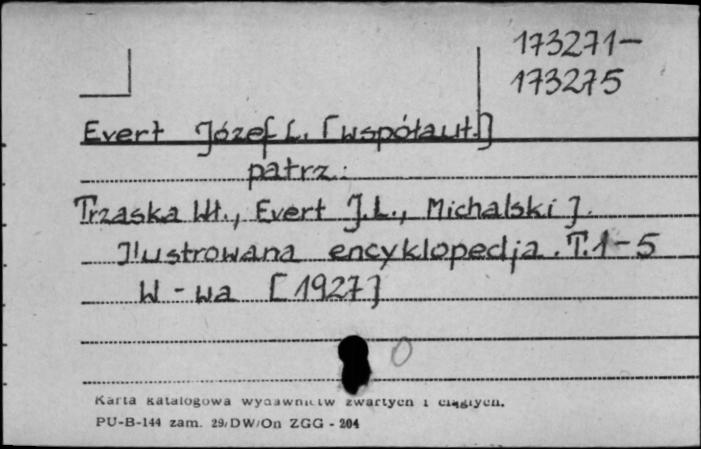 173271-
173275
Evert Józef L. [współaut.]
patrz:
Trzaska Wł., Evert J.L., Michalski J.
Ilustrowana encyklopedja. T.1-5
W-wa [1927]
0
Karta katalogowa wydawnictw zwartych i ciągłych.
PU-B-144 zam. 29/DW/On ZGG - 204